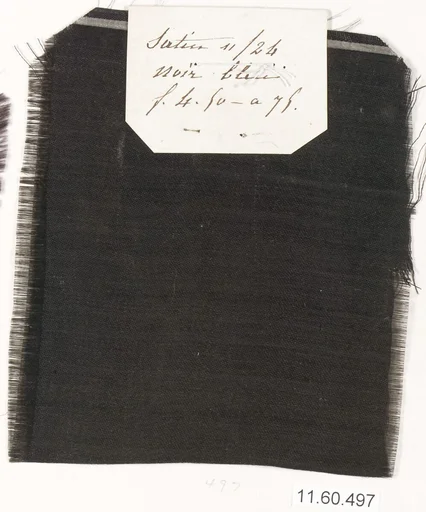 Satin 11/24
noir bleui
f. 4.50 - a 75.
497
11.60.497